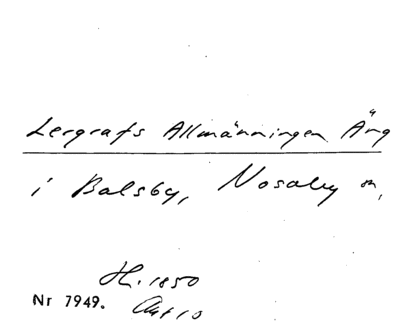 Lergrafs Allmänningen Äng
i Balsby, Nosaby sn,
H. 1850
Nr 7949. Akt 10